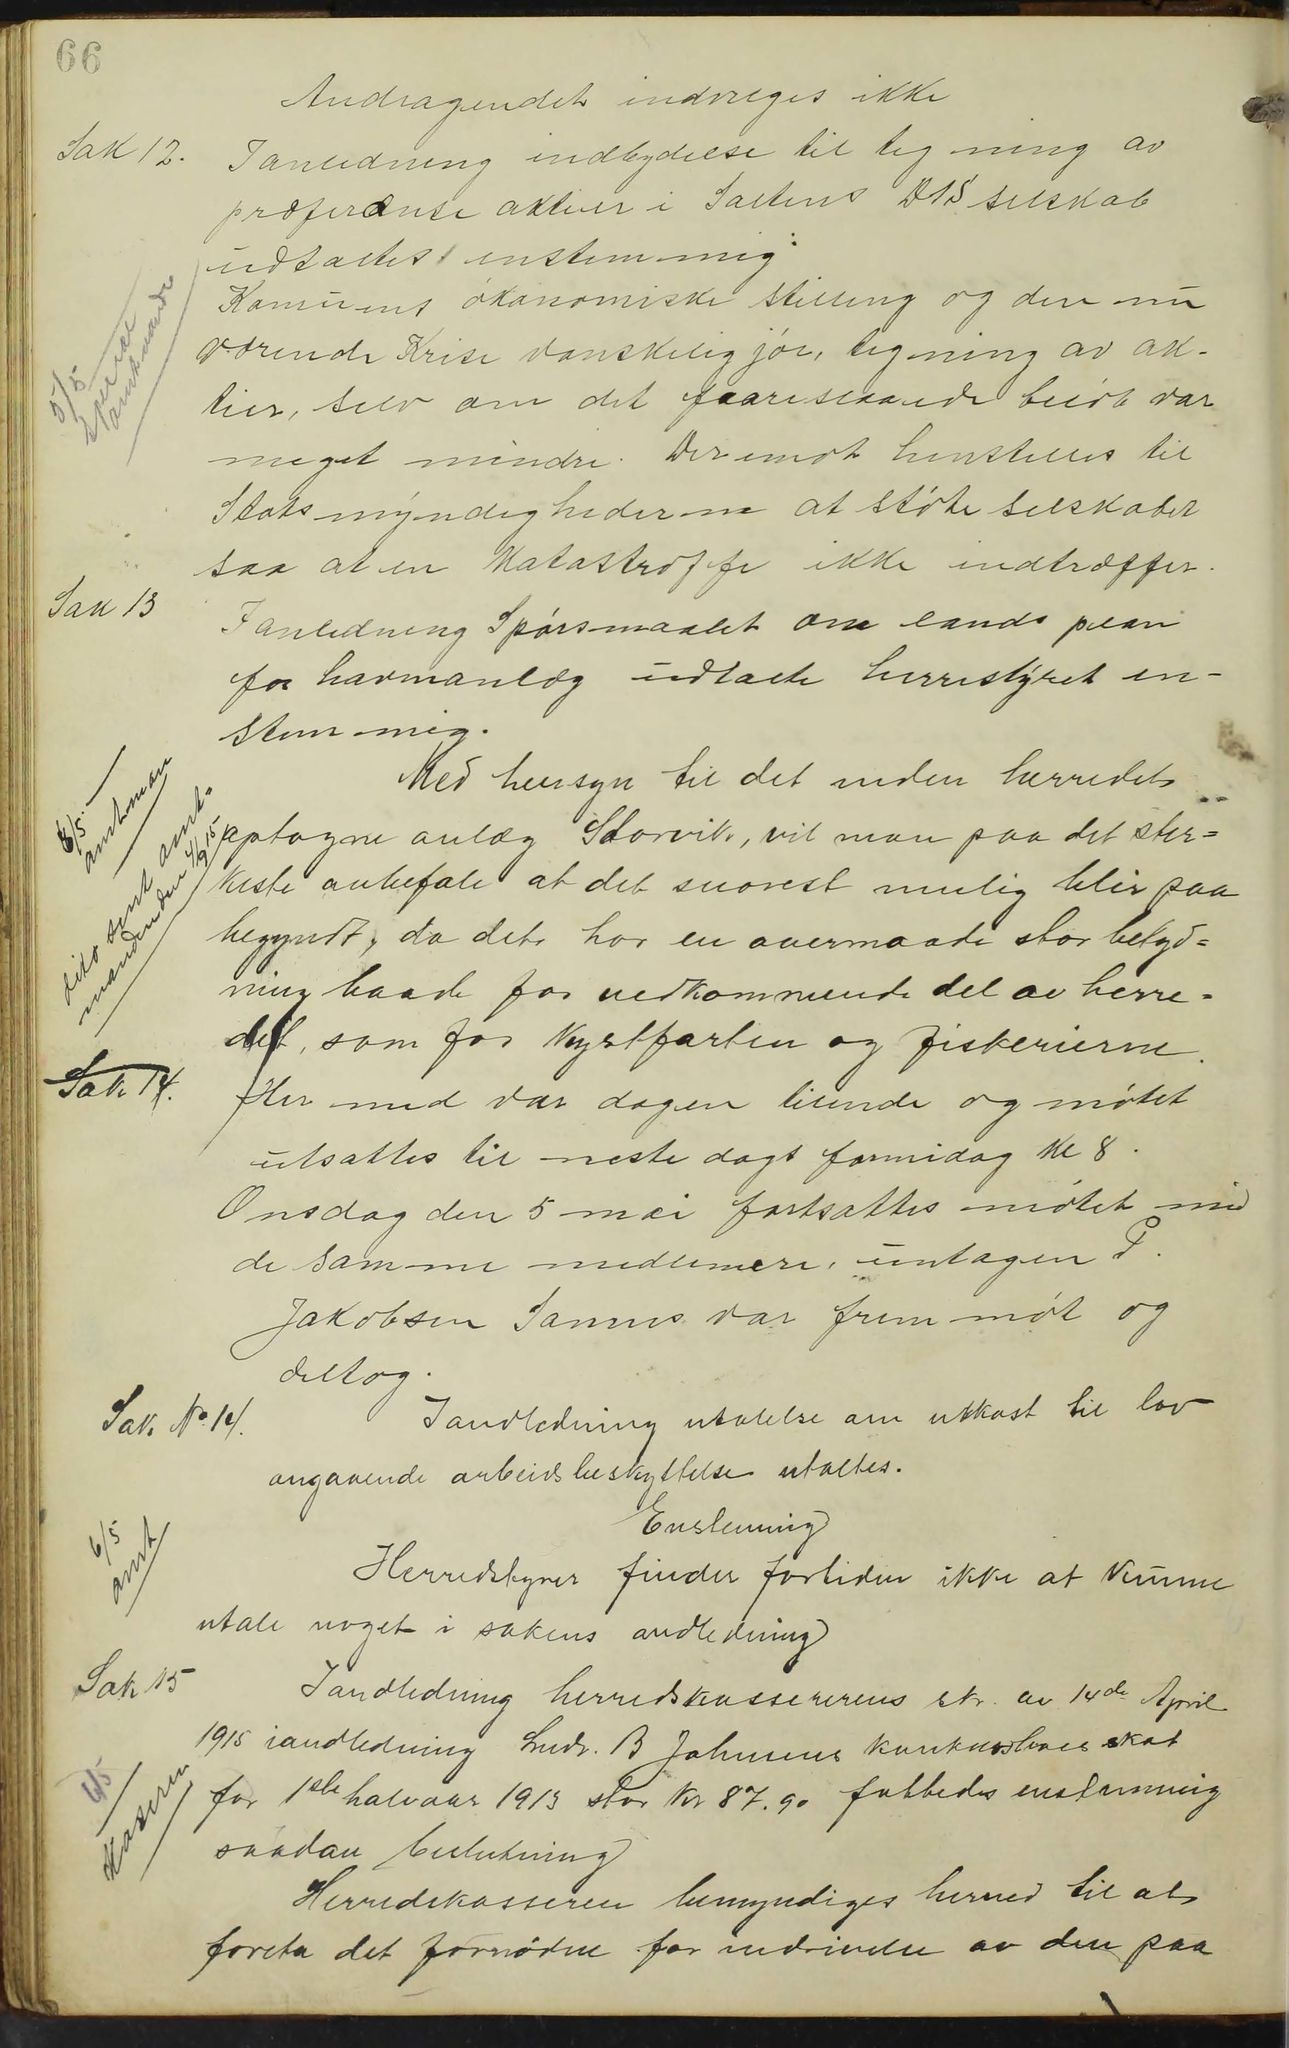 66
Andragendet indvilges ikke
Sak 12. I anledning indbydelse til tegning av
præferanse aktier i Saltens D/S selskab
udtaltes enstemmig:
Komunens økonomiske stilling og den nu
værende Krise vanskeliggjør, tegning av ak-
tier, selv om det foreslaaede beløb var
meget mindre. Derimot henstilles til
Statsmyndighederne at støte selskabet
saa at en Katastroffe ikke indtræffer.
5/5
amtmanden
Sak 13
I anledning Spørsmaalet om lands plan
for havnanlæg udtalte herrestyret en-
stemmig.
Med hensyn til det inden herredet
optagne anlæg Storvik, vil man paa det ster-
keste anbefale at det snarest mulig blir paa
begyndt, da det har en overmaade stor betyd-
ning baade for vedkommende del av herre-
det, som for Kystfarten og fiskerierne.
6/5
amtman
dito sent amt-
manden den 4/9 15
Sak 14.
Her med var dagen tilende og møtet
utsattes til neste dags formidag Kl 8.
Onsdag den 5 mai fortsattes møtet med
de samme medlemmer, untagen P.
Jakobsen Sannes var frem møt og
deltog.
Sak No. 14.
I andledning utalelse om utkast til lov
angaaende arbeidsbeskyttelse utaltes.
Enstemmig
Herredstyret finder fortiden ikke at kunne
utale noget i sakens andledning
6/5
amt
Sak 15
I andledning herredskassererens skr. av 14de April
1915 iandledning Lndr. B Johnsens konkursboes skat
for 1ste halvaar 1913 stor Kr 87.90 fattedes enstemmig
saadan beslutning
6/5
Kaseren
Herredskasseren bemyndiges herved til at
foreta det fornødne for inddrivelse av den paa